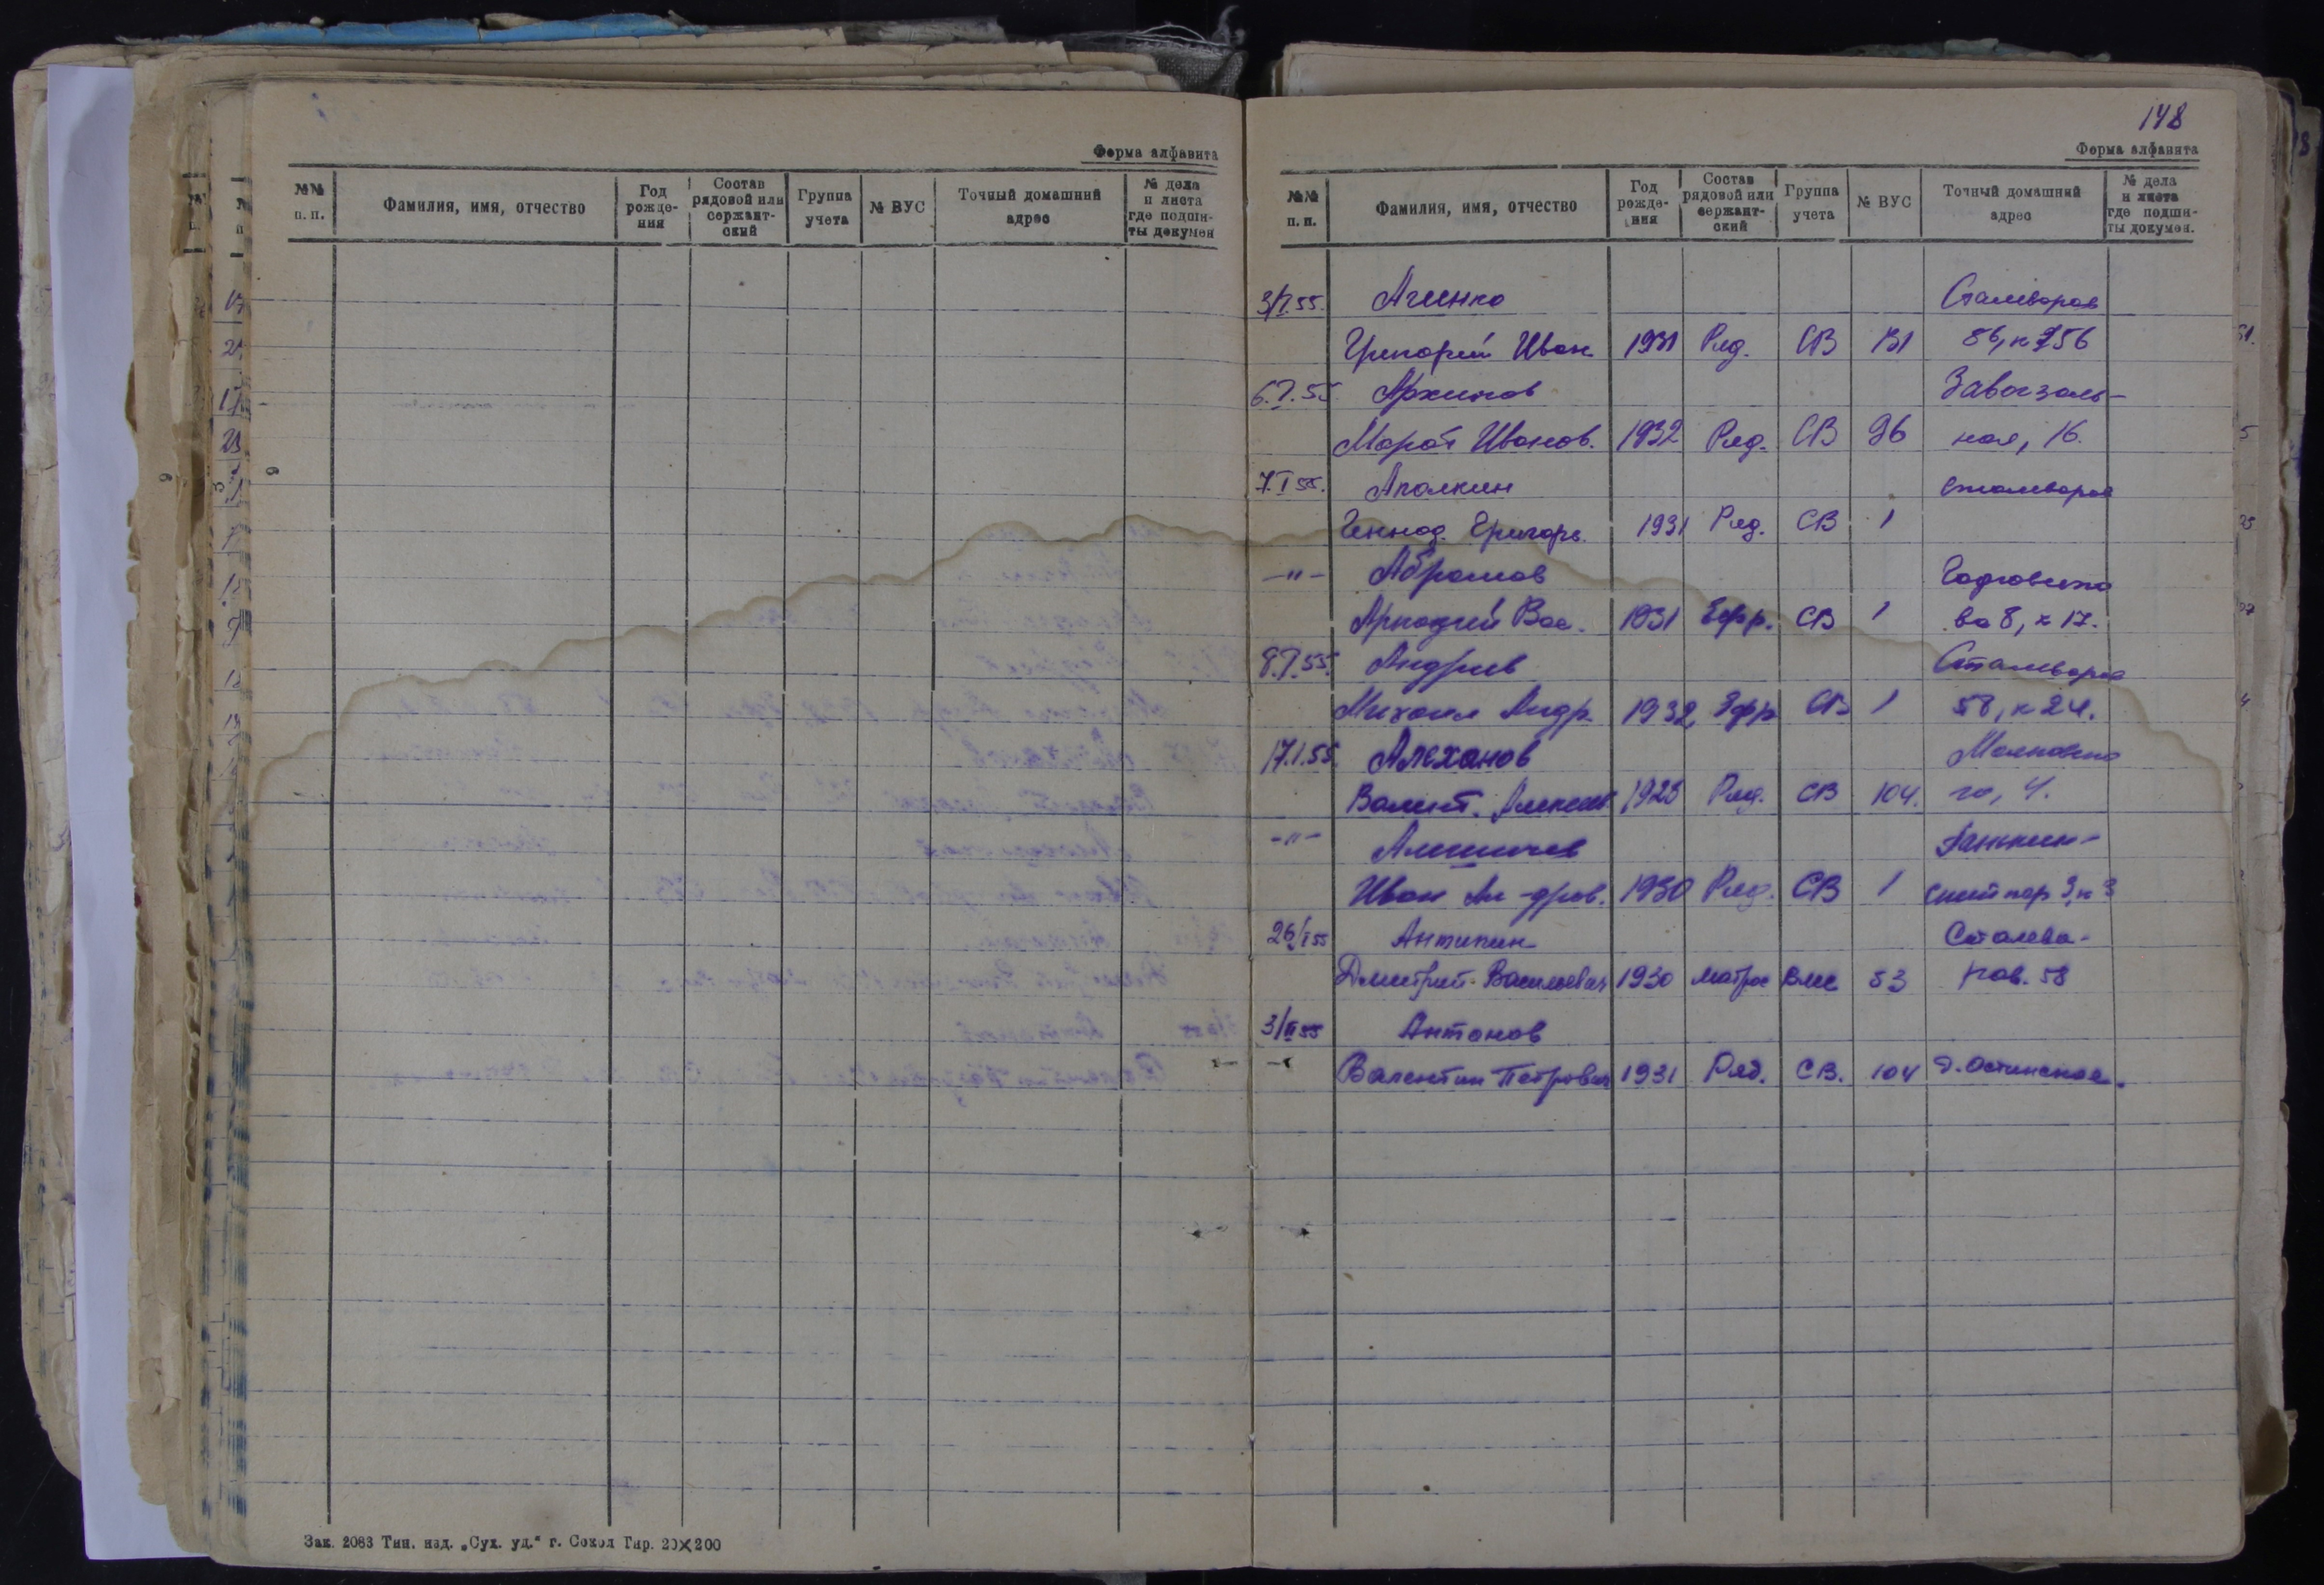 Форма алфавита
№№ п. п.
Фамилия, имя, отчество
Год рождения
Состав рядовой или сержантский
Группа учета
№ ВУС
Точный домашний адрес
№ дела и листа где подшиты докумен
Зак. 2083 Тип. изд. „Сух. уд.“ г. Сокол Тир. 20×200
148
Форма алфавита
№№ п. п.
Фамилия, имя, отчество
Год рождения
Состав рядовой или сержантский
Группа учета
№ ВУС
Точный домашний адрес
№ дела и листа где подшиты докумен.
3/I.55. Сталеваров
Григорий Иван. 1931 Ряд. СВ 131 86, к 256
6.I.55. Архипов Завокзаль-
Марат Иванов. 1932 Ряд. СВ 96 ная, 16.
7.I 55. Аполкин Сталеваров
Геннад. Григорь. 1931 Ряд. СВ 1
-"- Абрамов
Аркадий Вас. 1931 Ефр. СВ 1 ва 8, к 17.
8.I.55. Андриев Сталеваров
Михаил Андр. 1932 Ефр СВ 1 58, к 24.
17.I.55. Алеханов
Валент. Алексеев. 1928 Ряд. СВ 104. го, 4.
-"- Панькин-
Иван Ал-дров. 1930 Ряд. СВ 1 ский пер 3, к 3
26/I 55 Антипин Сталева-
Дмитрий Васильевич 1930 матрос ВМС 53 ров. 58
3/II 55 Антонов
Валентин Петрович 1931 Ряд. СВ. 104